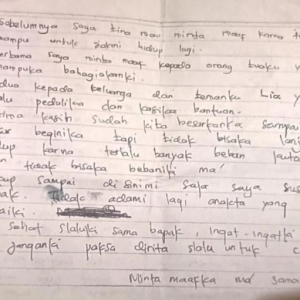 sebelumnya saya kira mau minta maaf karna t
mampu untuk jalani hidup lagi.
pertama saya minta maaf kepada orang tuaku y
mampuka bahagiakanki.
dua kepada keluarga dan temanku Lia y
lalu pedulika dan kasika bantuan.
rima kasih sudah kita besarkanka sampai
ar beginika tapi tidak bisaka lanj
up karna terlalu banyak beban kutan
n tidak bisaka bebaniki ma'
up sampai disinimi saja saya su
ak. tidak adami lagi anakta yang
aiki.
sehat slaluki sama bapak, ingat-ingatka
janganki paksa dirita slalu untuk c
Minta maafka ma' sama